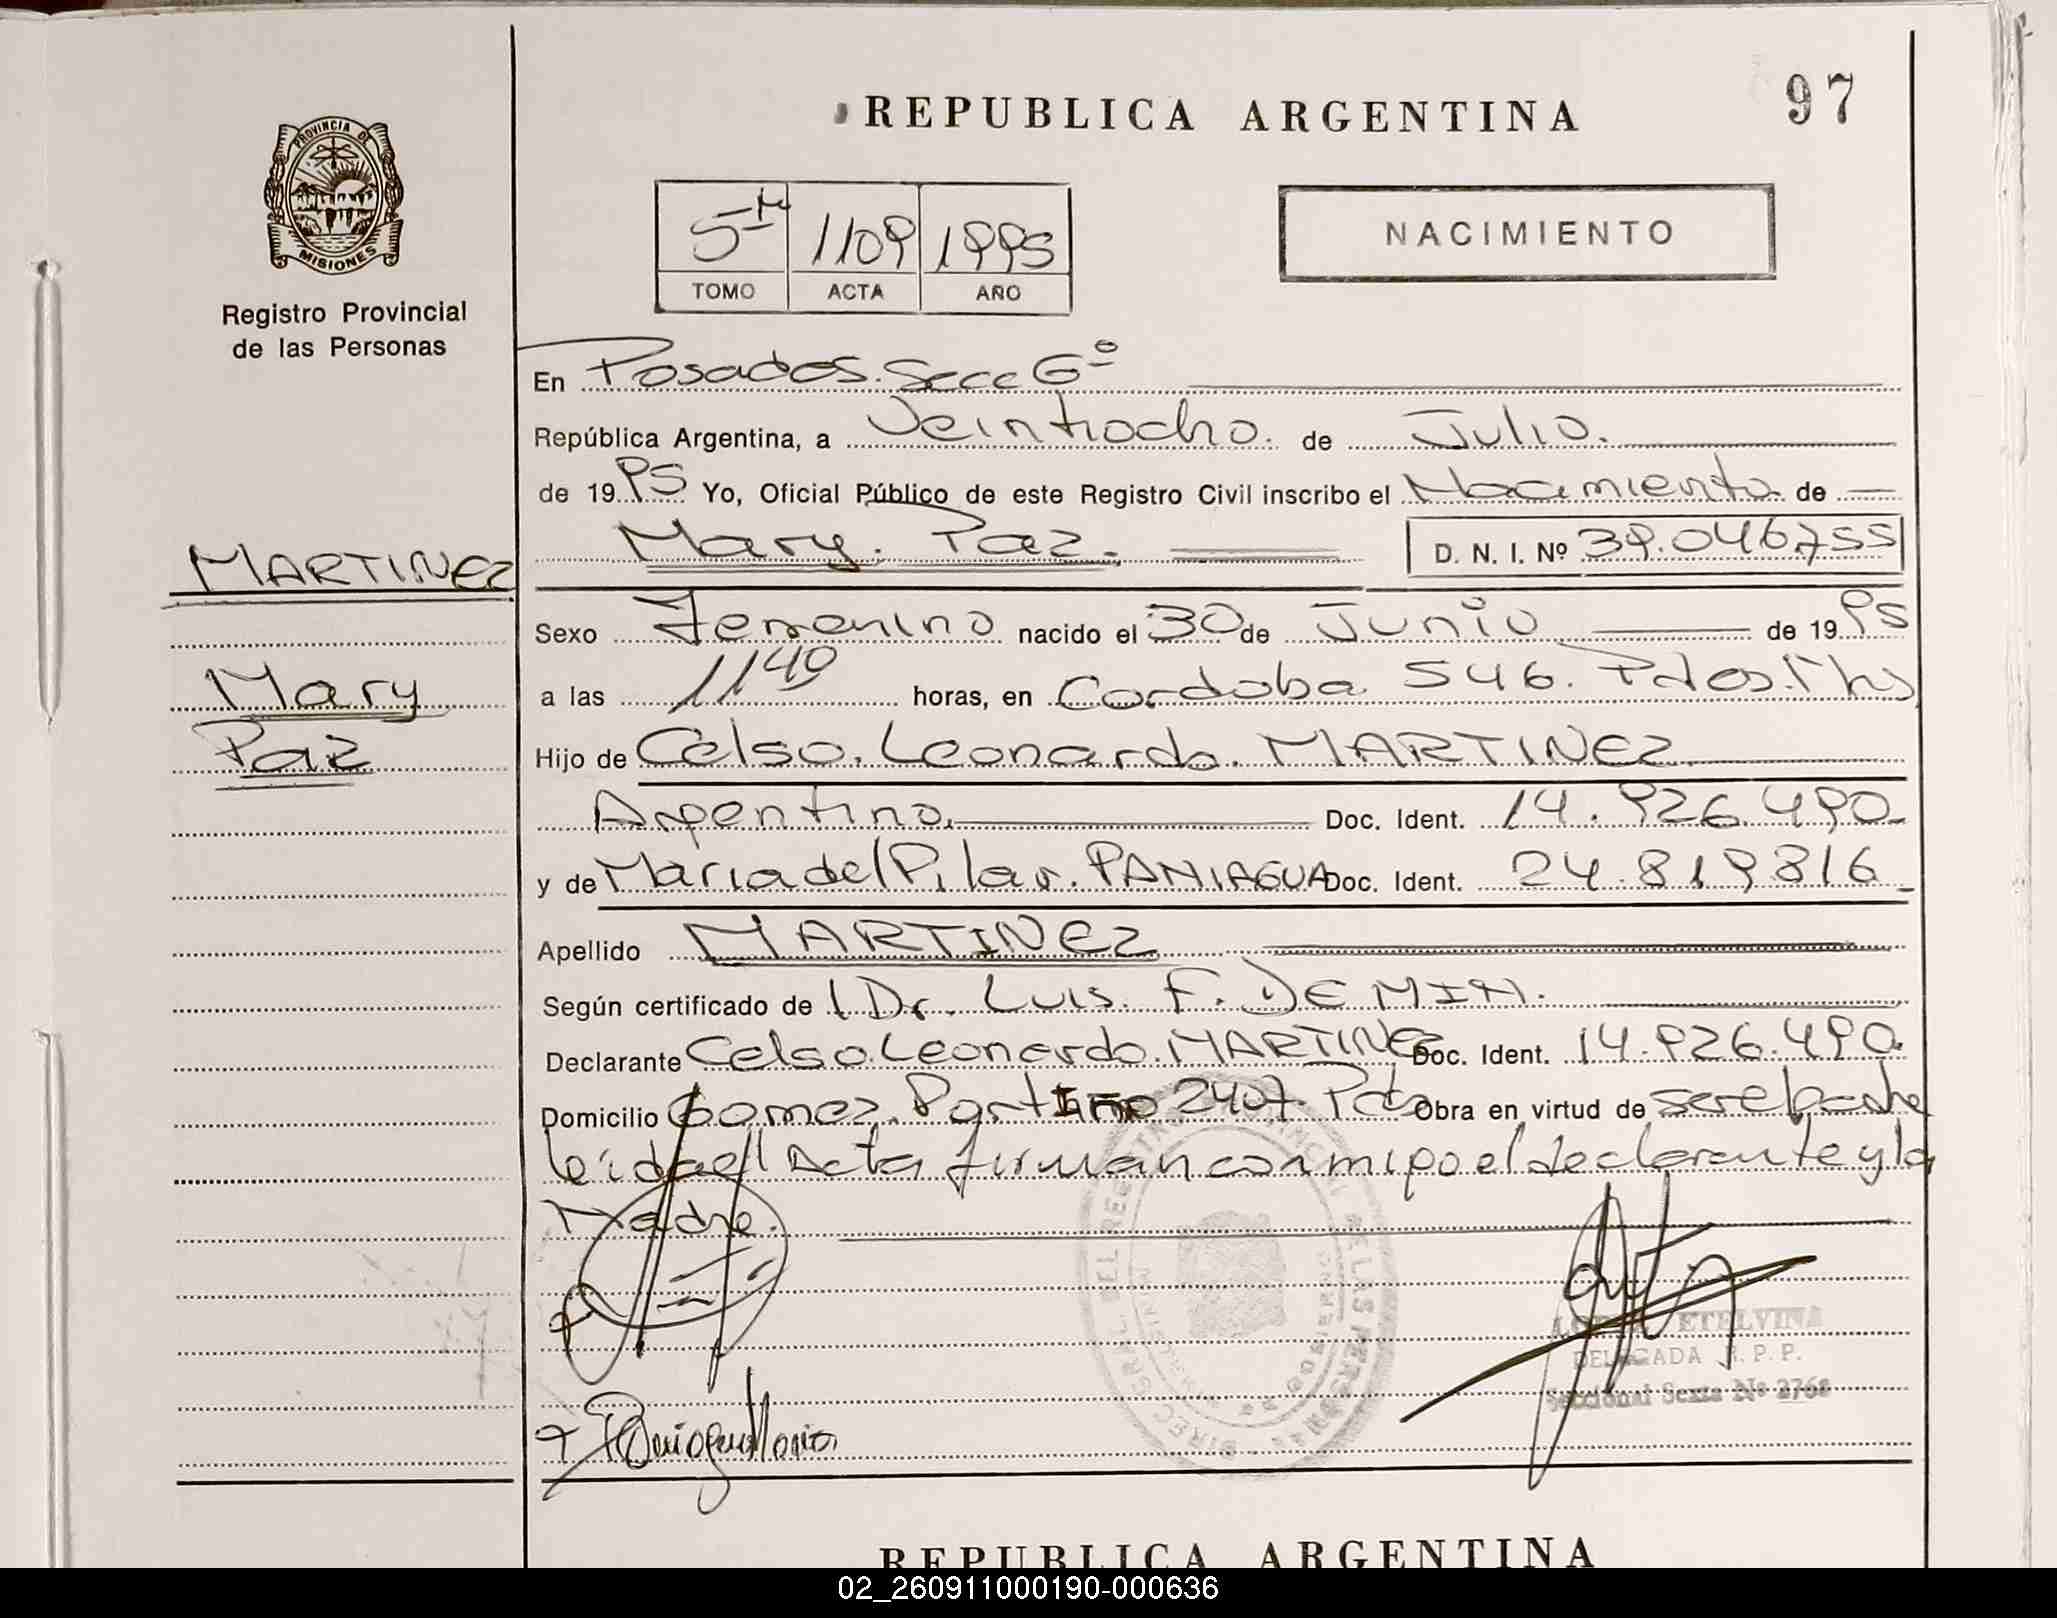 97
REPUBLICA ARGENTINA
PROVINCIA DE
MISIONES
Registro Provincial
de las Personas
5to 1109 1995
TOMO ACTA AÑO
NACIMIENTO
En Posadas. Secc 6º
República Argentina, a Veintiocho. de Julio.
de 1995 Yo, Oficial Público de este Registro Civil inscribo el Nacimiento de
Mary. Paz. D. N. I. Nº 39.046755
MARTINEZ
Mary
Paz
Sexo Femenino nacido el 30 de Junio de 1995
a las 1140 horas, en Cordoba 546. Pdas.
Hijo de Celso. Leonardo. MARTINEZ
Argentino. Doc. Ident. 14.926.490
y de Maria del Pilar. PANIAGUA Doc. Ident. 24.819816
Apellido MARTINEZ
Según certificado de l Dr. Luis. F. DEMIN.
Declarante Celso. Leonardo. MARTINEZ Doc. Ident. 14.926.490
Domicilio Gomez. Portinho 2407. Pdas Obra en virtud de ser el padre
leida el Acta firman conmigo el declarante y la
Madre.
ETELVINA
DELEGADA R. P. P.
Seccional Sexta Nº 2768
Paniagua Maria
REPUBLICA ARGENTINA
02_260911000190-000636